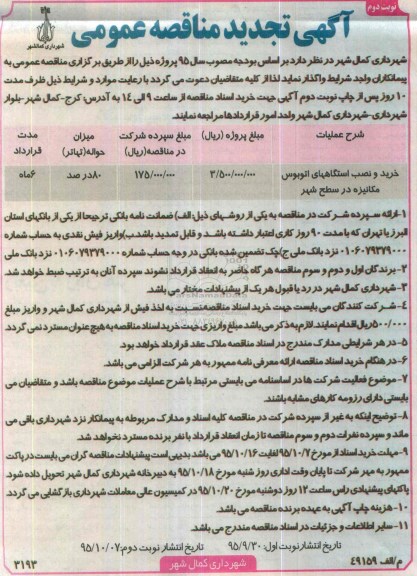 نوبت دوم
آگهی تجدید مناقصه عمومی
شهرداری کمالشهر
شهرداری کمال شهر در نظر دارد بر اساس بودجه مصوب سال ۹۵ پروژه ذیل را از طریق برگزاری مناقصه عمومی به
پیمانکاران واجد شرایط واگذار نماید لذا از کلیه متقاضیان دعوت می گردد با رعایت موارد و شرایط ذیل ظرف مدت
۱۰ روز پس از چاپ نوبت دوم آگهی جهت خرید اسناد مناقصه از ساعت ۹ الی ۱۴ به آدرس: کرج-کمال شهر-بلوار
شهرداری-شهرداری کمال شهر واحد امور قراردادها مراجعه نمایند.
شرح عملیات مبلغ پروژه (ریال) مبلغ سپرده شرکت در مناقصه(ریال) میزان حواله(تهاتر) مدت قرارداد
خرید و نصب استگاههای اتوبوس مکانیزه در سطح شهر ۳/۵۰۰/۰۰۰/۰۰۰ ۱۷۵/۰۰۰/۰۰۰ ۸۰در صد ۶ماه
۱-ارائه سپرده شرکت در مناقصه به یکی از روشهای ذیل:الف) ضمانت نامه بانکی ترجیحا از یکی از بانکهای استان
البرز یا تهران که با مدت ۹۰ روز کاری اعتبار داشته باشد و قابل تمدید باشد.ب)واریز فیش نقدی به حساب شماره
۰۱۰۶۰۷۹۳۷۹۰۰۰ نزد بانک ملی ج)چک تضمین شده بانکی در وجه حساب شماره ۰۱۰۶۰۷۹۳۷۹۰۰۰ نزد بانک ملی
۲- برندگان اول و دوم و سوم مناقصه هر گاه حاضر به انعقاد قرارداد نشوند سپرده آنان به ترتیب ضبط خواهد شد.
۳-شهرداری کمال شهر در رد یا قبول هر یک از پیشنهادات مختار می باشد.
۴-شرکت کنندگان می بایست جهت خرید اسناد مناقصه نسبت به اخذ فیش از شهرداری کمال شهر و واریز مبلغ
۵۰۰/۰۰۰ریال اقدام نمایند. لازم به ذکر می باشد مبلغ واریزی جهت خرید اسناد مناقصه به هیچ عنوان مسترد نمی گردد.
۵-در هر شرایطی مدارک مندرج در اسناد مناقصه ملاک عقد قرارداد خواهد بود.
۶-در هنگام خرید اسناد مناقصه ارائه معرفی نامه ممهور به هر شرکت الزامی می باشد.
۷-موضوع فعالیت شرکت ها در اساسنامه می بایستی مرتبط با شرح عملیات موضوع مناقصه باشد و متقاضیان می
بایستی دارای رزومه کارهای مشابه باشند.
۸-توضیح اینکه به غیر از سپرده شرکت در مناقصه کلیه اسناد و مدارک مربوطه به پیمانکار نزد شهرداری باقی می
ماند و سپرده نفرات دوم و سوم مناقصه تا زمان انعقاد قرارداد با نفر برنده مسترد نخواهد شد.
۹-مهلت خرید اسناد از مورخ ۹۵/۱۰/۷ لغایت ۹۵/۱۰/۱۶ می باشد. بدیهی است پیشنهادات مناقصه گران می بایست در پاکت
ممهور به مهر شرکت تا پایان وقت اداری روز شنبه مورخ ۹۵/۱۰/۱۸ به دبیرخانه شهرداری کمال شهر تحویل داده شود.
پاکتهای پیشنهادی راس ساعت ۱۲ روز دوشنبه مورخ ۹۵/۱۰/۲۰ در کمیسیون عالی معاملات شهرداری بازگشایی می گردد.
۱۰-هزینه چاپ آگهی به عهده برنده مناقصه می باشد.
۱۱-سایر اطلاعات و جزئیات در اسناد مناقصه مندرج می باشد.
تاریخ انتشار نوبت اول: ۹۵/۹/۳۰ تاریخ انتشار نوبت دوم: ۹۵/۱۰/۰۷
م/الف ۴۹۱۵۹ شهرداری کمال شهر ۳۱۹۳